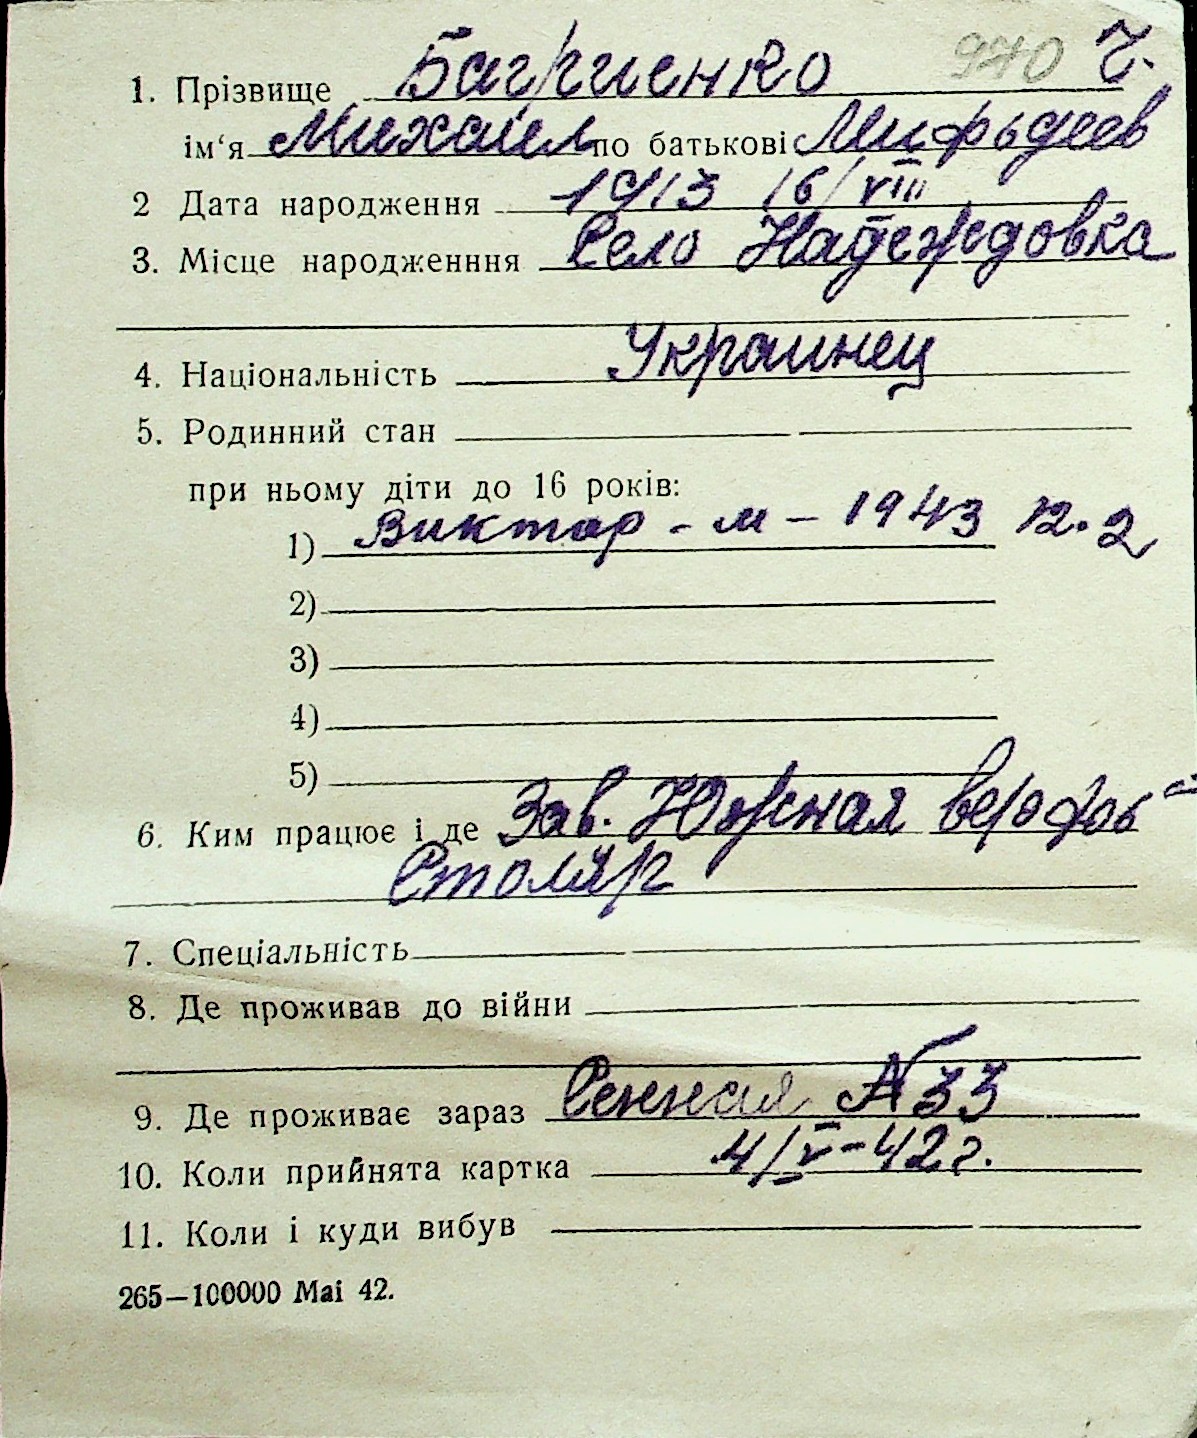 970 Ч.
1. Прізвище Багриенко
ім‘я Михаил по батькові Мифьдеев
2 Дата народження 1913 16/VIII
3. Місце народженння Село Надеждовка
4. Національність Украинец
5. Родинний стан
при ньому діти до 16 років:
1) Виктор - м - 1943 12.2
2)
3)
4)
5)
6. Ким працює і де Зав. Южная верофь
Столяр
7. Спеціальність
8. Де проживав до війни
9. Де проживає зараз Сенная № 33
10. Коли прийнята картка 4/V-42 г.
11. Коли і куди вибув
265—100000 Mai 42.